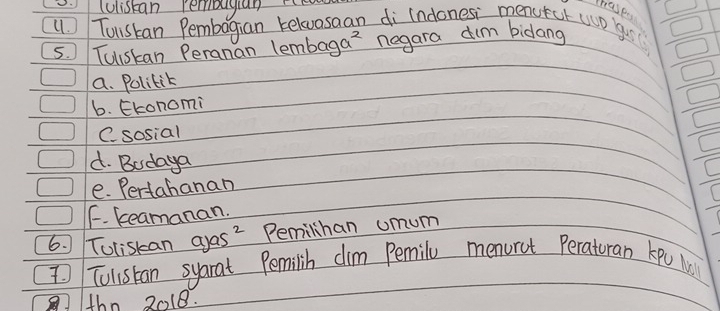 3. Tuliskan Pembagian
4. Tuliskan Pembagian kekuasaan di Indonesi menurut UUD
5. Tuliskan Peranan lembaga² negara dlm bidang
a. Politik
b. Ekonomi
c. sosial
d. Budaya
e. Pertahanan
F. keamanan.
6. Tuliskan asas² Pemilihan umum
7. Tuliskan syarat Pemilih dlm Pemilu menurut Peraturan KPU No 11
thn 2018.